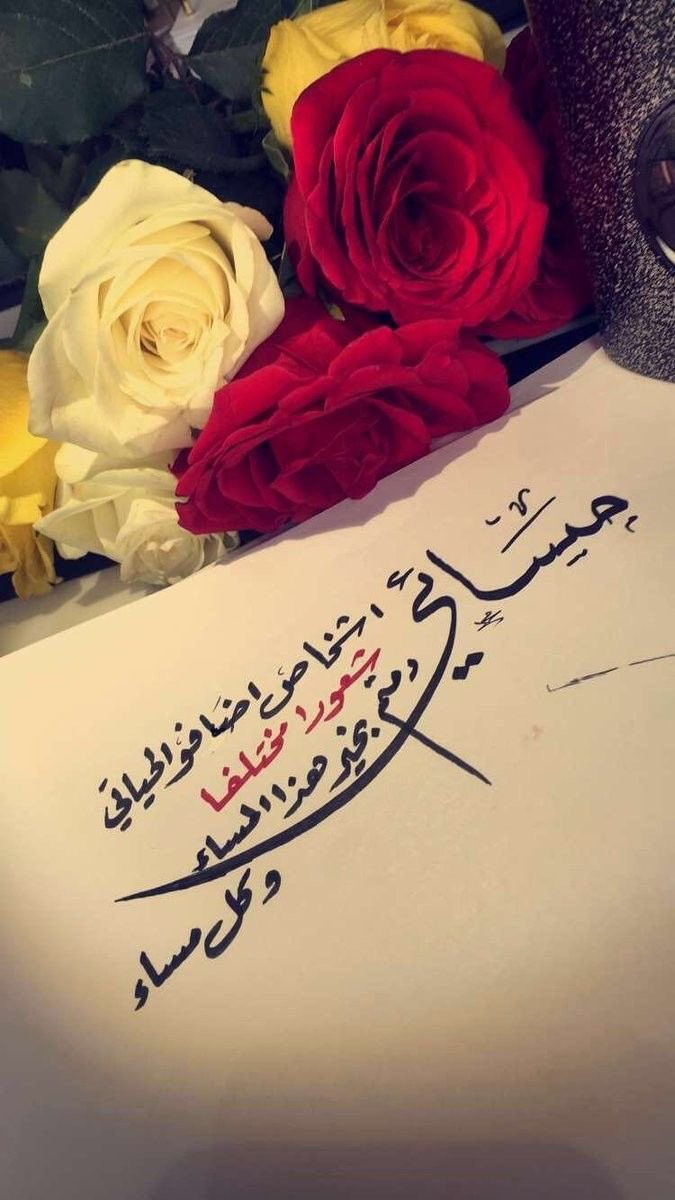 مسائي
اشخاص اضافو لحياتي
شعورا مختلفا
دمتم بخير هذا المساء
وكل مساء